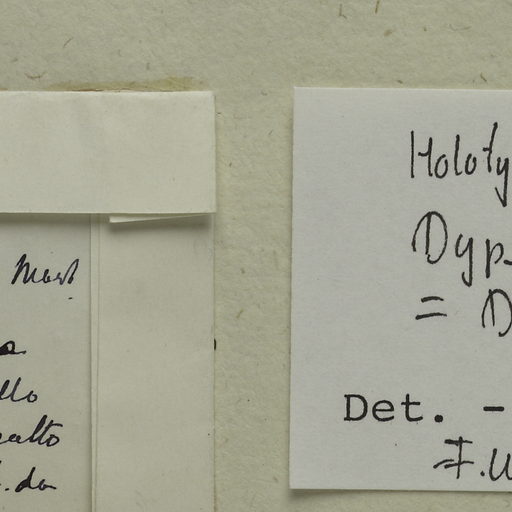 Mart
llo
alto
.da
Holoty
Dyp
= D
Det. -
F.W